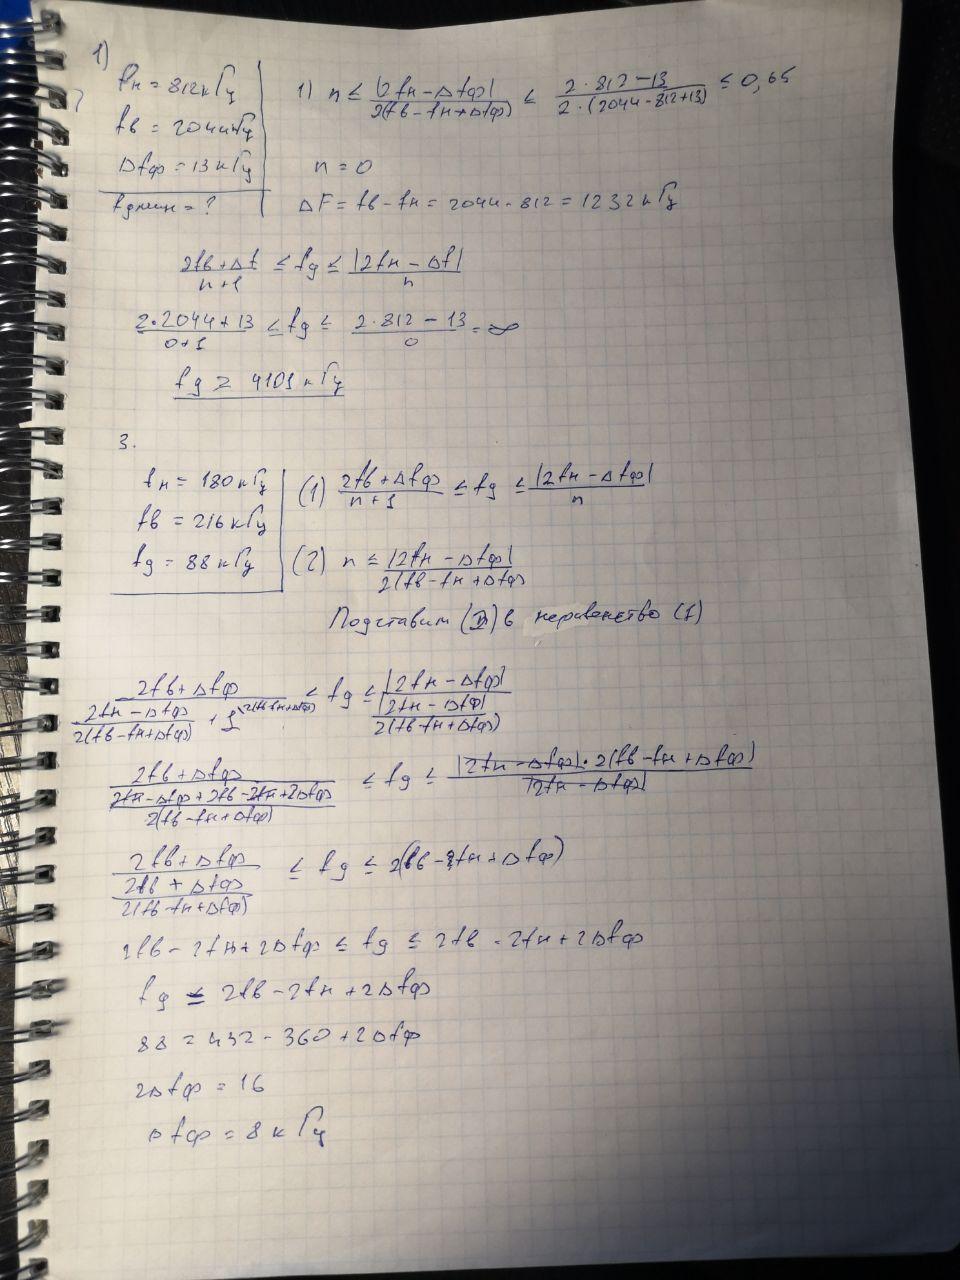 1)
fн = 812 кГц
fв = 2044 кГц
Δfф = 13 кГц
fдмин = ?
1) n ≤ |2fн - Δfф| / 2(fв - fн + Δfф) ≤ 2·812 - 13 / 2·(2044 - 812 + 13) ≤ 0,65
n = 0
ΔF = fв - fн = 2044 - 812 = 1232 кГц
2fв + Δf / n+1 ≤ fд ≤ |2fн - Δf| / n
2·2044 + 13 / 0+1 ≤ fд ≤ 2·812 - 13 / 0 = ∞
fд ≥ 4101 кГц
3.
fн = 180 кГц
fв = 216 кГц
fд = 88 кГц
(1) 2fв + Δfф / n+1 ≤ fд ≤ |2fн - Δfф| / n
(2) n ≤ |2fн - Δfф| / 2(fв - fн + Δfф
Подставим (2) в неравенство (1)
2fв + Δfф / (2fн - Δfф / 2(fв - fн + Δfф) + 1 2(fв-fн+Δfф)) ≤ fд ≤ |2fн - Δfф| / (|2fн - Δfф| / 2(fв - fн + Δfф))
2fв + Δfф / (2fн - Δfф + 2fв - 2fн + 2Δfф / 2(fв - fн + Δfф)) ≤ fд ≤ |2fн - Δfф| · 2(fв - fн + Δfф) / |2fн - Δfф|
2fв + Δfф / (2fв + Δfф / 2(fв - fн + Δfф)) ≤ fд ≤ 2(fв - fн + Δfф)
2fв - 2fн + 2Δfф ≤ fд ≤ 2fв - 2fн + 2Δfф
fд ≤ 2fв - 2fн + 2Δfф
88 = 432 - 360 + 2Δfф
2Δfф = 16
Δfф = 8 кГц